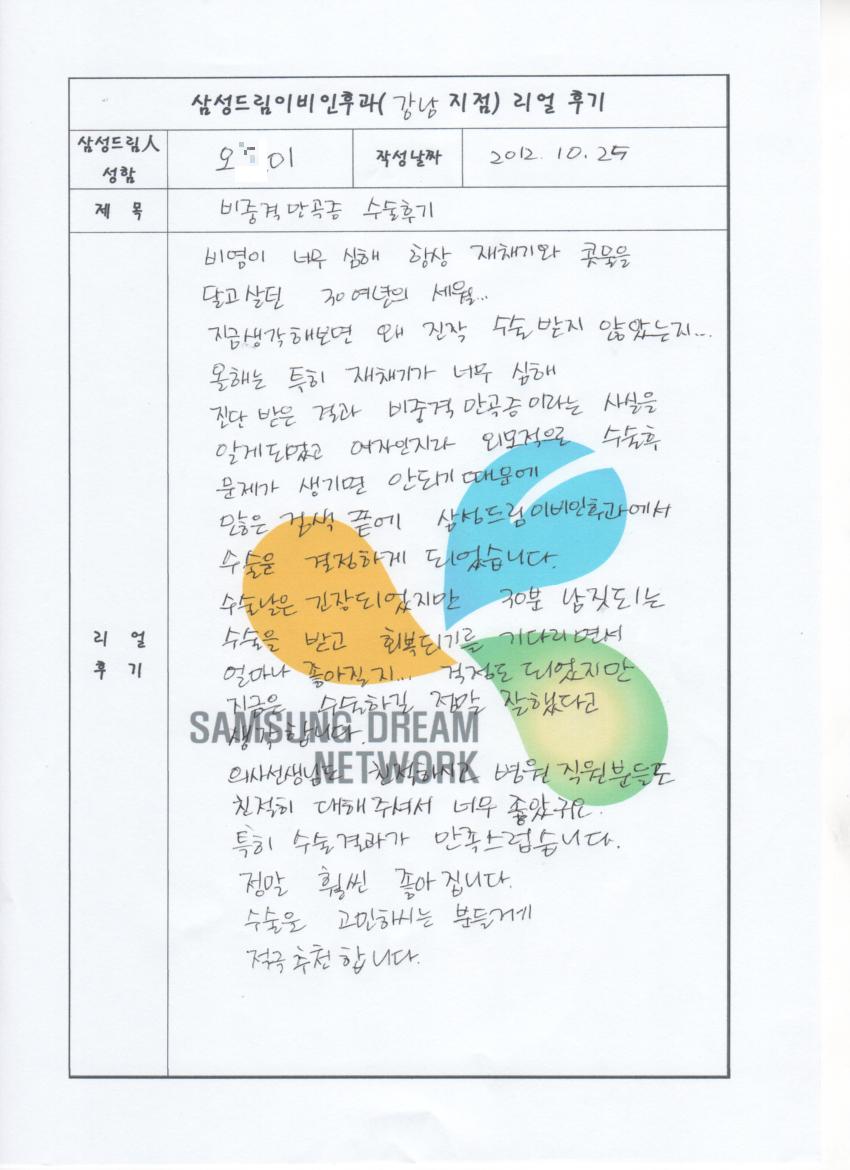 삼성드림이비인후과( 강남 지점) 리얼 후기
삼성드림人 성함
오 이
작성날짜
2012. 10. 25
제 목
비중격만곡증 수술후기
리 얼 후 기
비염이 너무 심해 항상 재채기와 콧물을
달고살던 30여년의 세월...
지금생각해보면 왜 진작 수술받지 않았는지...
올해는 특히 재채기가 너무 심해
진단 받은 결과 비중격만곡증이라는 사실을
알게되었고 여자인지라 외모적으로 수술후
문제가 생기면 안되기때문에
많은 검색 끝에 삼성드림이비인후과에서
수술을 결정하게 되었습니다.
수술날은 긴장되었지만 30분 남짓되는
수술을 받고 회복되기를 기다리면서
얼마나 좋아질지... 걱정도 되었지만
지금은 수술하길 정말 잘했다고
생각합니다.
의사선생님도 친절하시고 병원 직원분들도
친절히 대해주셔서 너무 좋았구요.
특히 수술결과가 만족스럽습니다.
정말 훨씬 좋아집니다.
수술을 고민하시는 분들게
적극추천합니다.
SAMSUNG DREAM
NETWORK